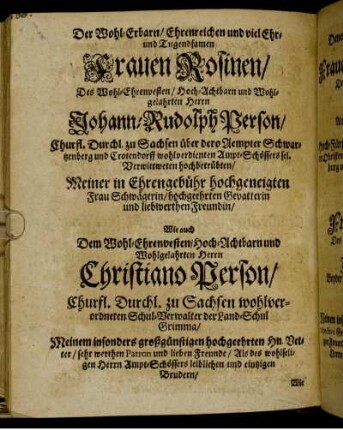 Der Wohl-Erbarn/ Ehrenreichen und viel Ehr-
und Tugendsamen
Frauen Rosinen/
Des Wohl-Ehrenvesten/ Hoch-Achtbarn und Wohl-
gelahrten Herrn
Johann-Rudolph Person/
Churfl. Durchl. zu Sachsen über dero Aempter Schwar-
tzenberg und Crotendorff wohlverdienten Ampt-Schössers sel.
Verwittweten hochbetrübten/
Meiner in Ehrengebühr hochgeneigten
Frau Schwägerin/ hochgeehrten Gevatterin
und liebwerthen Freundin/
Wie auch
Dem Wohl-Ehrenvesten/Hoch-Achtbarn und
Wohlgelahrten Herrn
Christiano Person/
Churfl. Durchl. zu Sachsen wohlver-
ordneten Schul-Verwalter der Land-Schul
Grimma/
Meinem insonders großgünstigen hochgeehrten Hn. Vet-
ter/ sehr werthen Patron und lieben Freunde/ Als des wohlseli-
gen Herrn Ampt-Schössers leiblichen und eintzigen
Brudern/
Wie